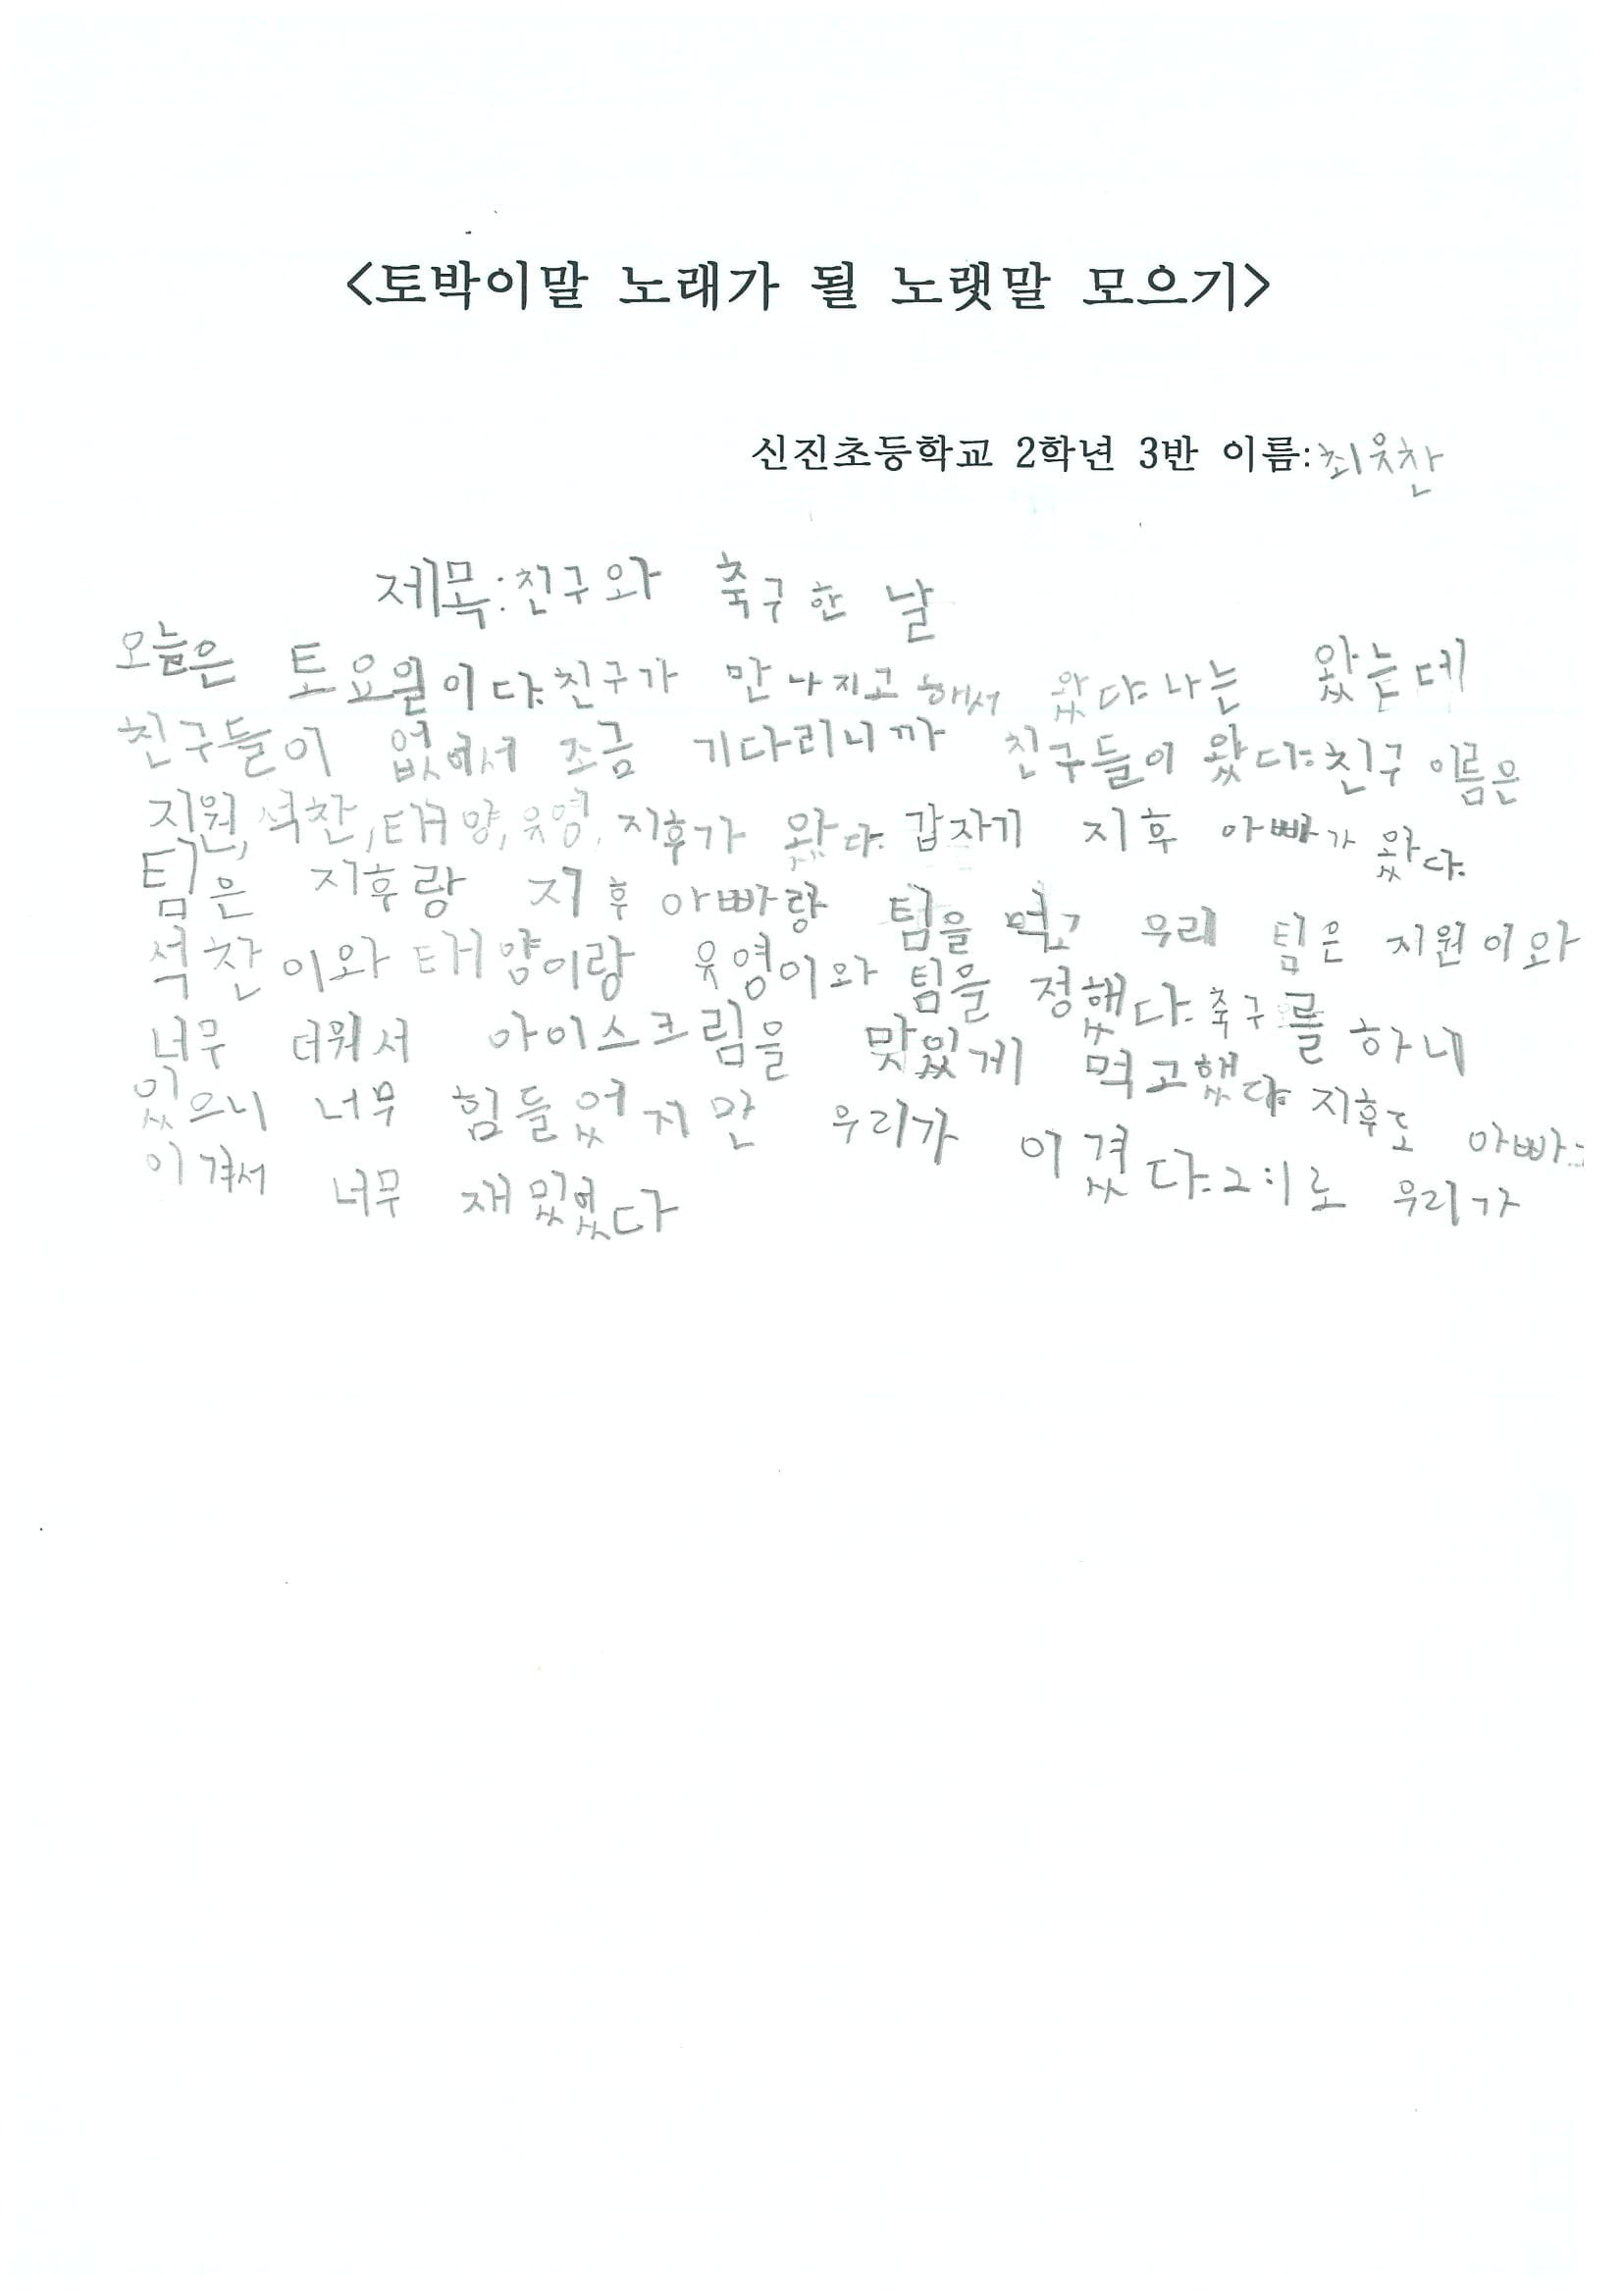 <토박이말 노래가 될 노랫말 모으기>
신진초등학교 2학년 3반 이름:최윳찬
제목:친구와 축구 한 날
오늘은 토요일이다.친구가 만나지고 해서 왔다.나는 왔는데
친구들이 없어서 조금 기다리니까 친구들이 왔다.친구 이름은
지원,석찬,태양,윳영,지후가 왔다.갑자기 지후 아빠가 왔다.
팀은 지후랑 지후 아빠랑 팀을 먹고 우리 팀은 지원이와
석찬이와 태양이랑 윳영이와 팀을 정했다.축구를 하니
너무 더워서 아이스크림을 맛있게 먹고했다.지후도 아빠
있으니 너무 힘들었지만 우리가 이겼다.2:1로 우리가
이겨서 너무 재밌었다